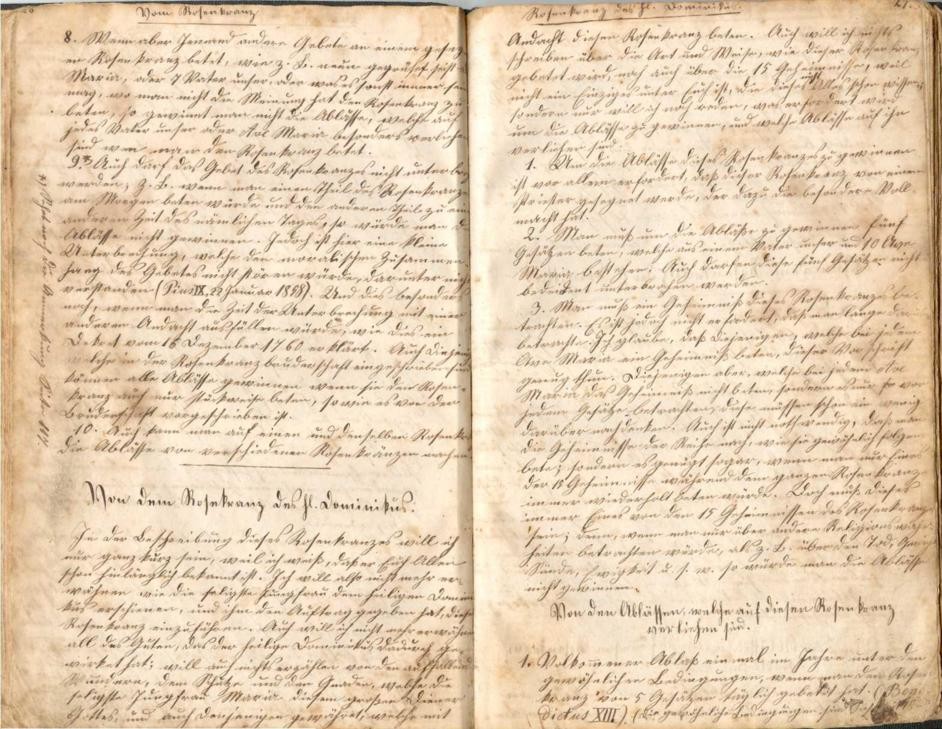 Vom Rosenkranz
8. Wenn aber Jemand andere Gebete an einem geseg-
en Rosenkranz betet, wie z. B. neun gegrüßet seist
Maria, oder 7 Vater unser, oder was es sonst immer sein
mag, wo man nicht die Meinung hat den Rosenkranz zu
beten, so gewinnt man nicht die Ablässe, welche auf
jedes Vater unser oder Ave Maria besonders verliehen
sind wen man den Rosenkranz betet.
9. Auch darf das Gebet des Rosenkranzes nicht unterbro
werden, z. B. wenn man einen Theil des Rosenkranzes
am Morgen beten würde und den anderen Theil zu ein
anderen Zeit des nämlichen Tages, so würde man d
Ablässe nicht gewinnen. Jedoch ist hier eine kleine
Unterbrechung, welche den moralischen Zusammen-
hang des Gebetes nicht stören würde, darunter nich
verstanden (Pius IX, 22 Januar 1858). Und dies besonders
noch, wenn man die Zeit der Unterbrechung mit einer
anderen Andacht ausfüllen würde, wie dies ein
Dekret vom 16 Dezember 1760 erklärt. Auch diejen
welche in der Rosenkranzbruderschaft eingeschrieben sind
können alle Ablässe gewinnen wenn sie den Rosen-
kranz auch nur stückweise beten, so wie es von der
Bruderschaft vorgeschrieben ist.
10. Auch kann man auf einen und denselben Rosenkr
die Ablässe von verschiedenen Rosenkränzen machen
Von dem Rosenkranz des hl. Dominikus.
In der Beschreibung dieses Rosenkranzes will ich
nur ganz kurz sein, weil ich weiß, daß er Euch Allen
schon hinlänglich bekannt ist. Ich will also nicht mehr er-
wähnen wie die seligste Jungfrau dem heiligen Domin
kus erschienen, und ihm den Auftrag gegeben hat, diesen
Rosenkranz einzuführen. Auch will ich nicht mehr erwähn
all des Guten, das der heilige Dominikus dadurch ge-
wirket hat; will auch nichts erzählen von den auffallend
Wundern, dem Schutze und den Gnaden, welche die
seligste Jungfrau Maria diesem großen Diener
Gottes, und auch denjenigen gewähret, welche mit
Rosenkranz des hl. Dominikus.
27.
Andacht diesen Rosenkranz beten. Auch will ich nichts
schreiben über die Art und Weise, wie dieser Rosenkranz
gebetet wird, noch auch über die 15 Geheimnisse, weil
nicht ein Einziger unter Euch ist, die dieses Alles nicht schon wissen;
sondern nur will ich noch reden, was erfordert wird
um die Ablässe zu gewinnen, und welche Ablässe auf ihn
verliehen sind.
1. Um die Ablässe dieses Rosenkranzes zu gewinnen
ist vor allem erfordert, daß dieser Rosenkranz von einem
Priester gesegnet werde, der dazu die besondere Voll-
macht hat.
2. Man muß um die Ablässe zu gewinnen fünf
Gesätzer beten, welche aus einem Vater unser und 10 Ave
Maria bestehen. Auch dürfen diese fünf Gesätzer nicht
bedeutent unterbrochen werden.
3. Man muß ein Geheimniß dieses Rosenkranzes be-
trachten. Es ist jedoch nicht erfordert, daß man lange dari
betrachte. Ich glaube, daß diejenigen, welche bei jedem
Ave Maria ein Geheimniß beten, dieser Vorschrift
genug thun. Diejenigen aber, welche bei jedem Ave
Maria das Geheimniß nicht beten, sondern es nur so vor
jedem Gesätze betrachten, diese müssen schon ein wenig
darüber nachdenken. Auch ist nicht nothwendig, daß man
die Geheimnisse der Reihe nach, wie sie gewöhnlich folgen
bete; sondern es genügt sogar, wenn man nur Eines
der 15 Geheimnisse während dem ganzen Rosenkranz
immer wiederholt beten würde. Doch muß dieses
immer Eines von den 15 Geheimnissen des Rosenkranzes
sein; denn, wenn man nur über andere Religionswahr-
heiten betrachten würde, als z. B. über den Tod,
Sünde, Ewigkeit u. s. w. so würde man die Ablässe
nicht gewinnen.
Von den Ablässen, welche auf diesen Rosenkranz
verliehen sind.
1. Vollkommener Ablaß einmal im Jahre unter den
gewöhnlichen Bedingungen, wenn man den Rosen-
kranz von 5 Gesätzen täglich gebetet hat. (Bene-
dictus XIII) (die gewöhnliche Bedingungen sind